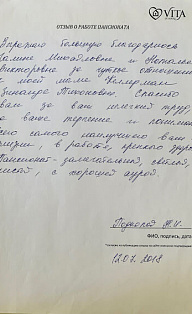 VITA
ОТЗЫВ О РАБОТЕ ПАНСИОНАТА
Выражаю большую благодарность
Галине Михайловне и Наталье
Викторовне за чуткое отношение
к моей маме
Зинаиде Тихоновне. Спасибо
вам за ваш нелегкий труд,
за ваше терпение и понимание
всего самого наилучшего вам
жизни, в работе, крепкого здоровья
Пансионат - замечательный, светлый,
чистый, с хорошей аурой.
ФИО, подпись, дата
12.07.2018